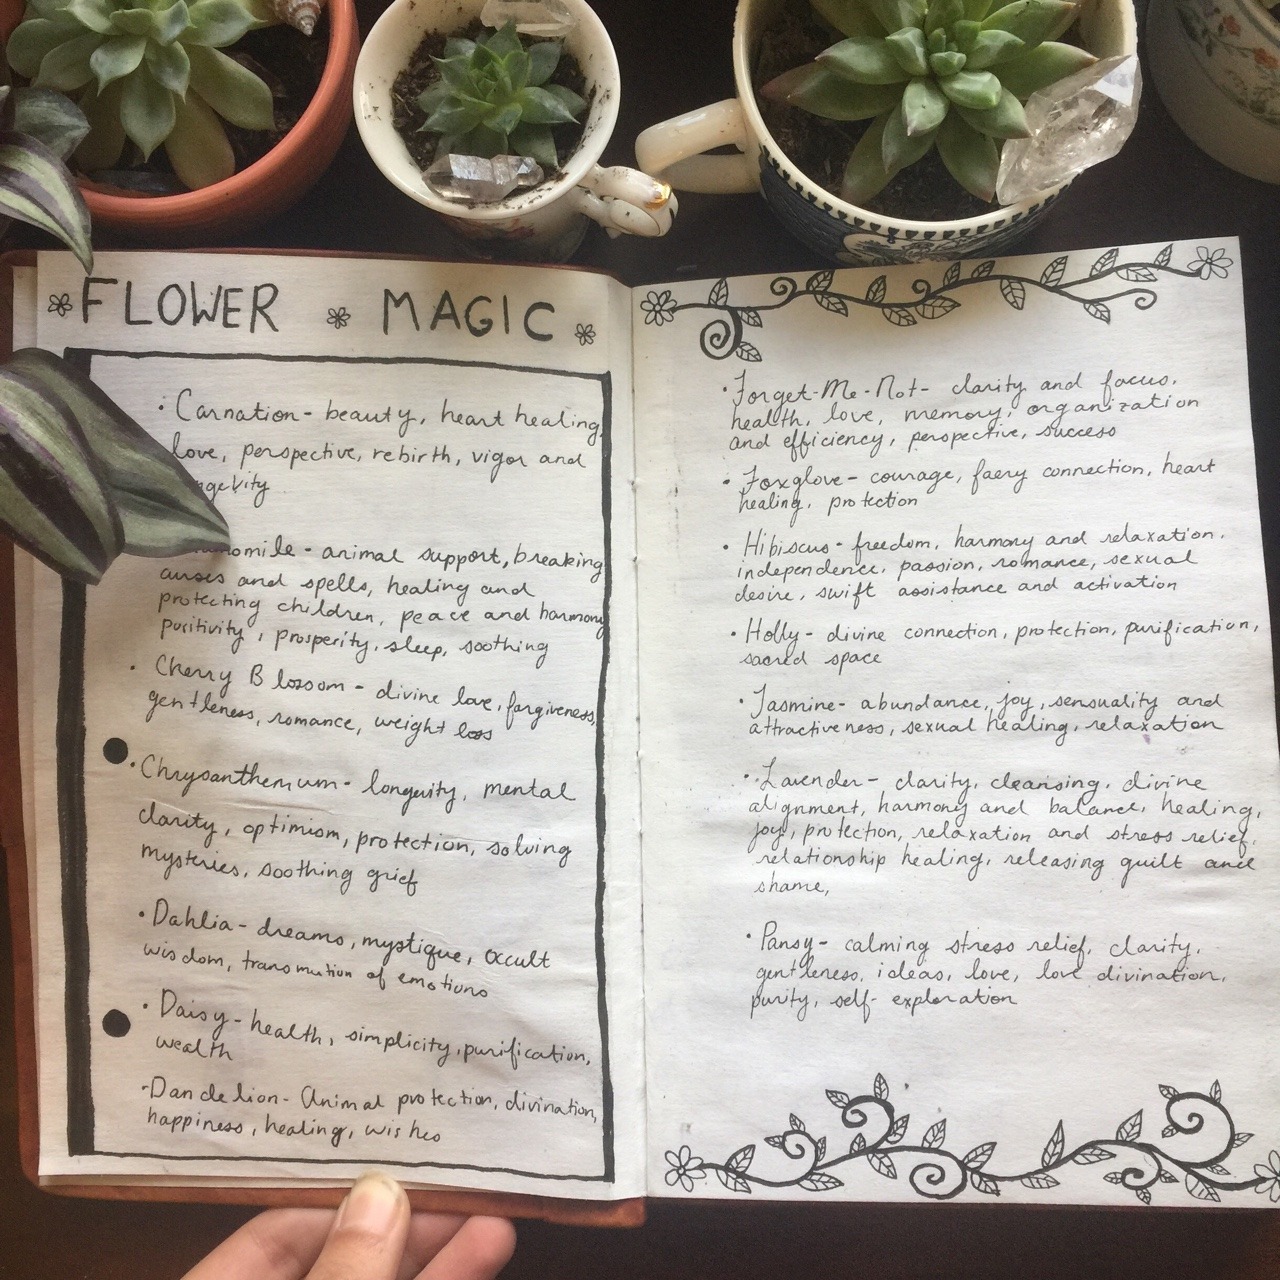 FLOWER MAGIC
• Carnation - beauty, heart healing,
love, perspective, rebirth, vigor and
ngevity
momile - animal support, breaking
curses and spells, healing and
protecting children, peace and harmony
positivity, prosperity, sleep, soothing
• Cherry Blossom - divine love, forgiveness,
gentleness, romance, weight loss
• Chrysanthemum - longevity, mental
clarity, optimism, protection, solving
mysteries, soothing grief
• Dahlia - dreams, mystique, occult
wisdom, transmution of emotions
• Daisy - health, simplicity, purification,
wealth
• Dandelion - Animal protection, divination,
happiness, healing, wishes
• Forget-Me-Not - clarity and focus,
health, love, memory, organization
and efficiency, perspective, success
• Foxglove - courage, faery connection, heart
healing, protection
• Hibiscus - freedom, harmony and relaxation,
independence, passion, romance, sexual
desire, swift assistance and activation
• Holly - divine connection, protection, purification,
sacred space
• Jasmine - abundance, joy, sensuality and
attractiveness, sexual healing, relaxation
• Lavender - clarity, cleansing, divine
alignment, harmony and balance, healing,
joy, protection, relaxation and stress relief,
relationship healing, releasing guilt and
shame,
• Pansy - calming stress relief, clarity,
gentleness, ideas, love, love divination,
purity, self-exploration